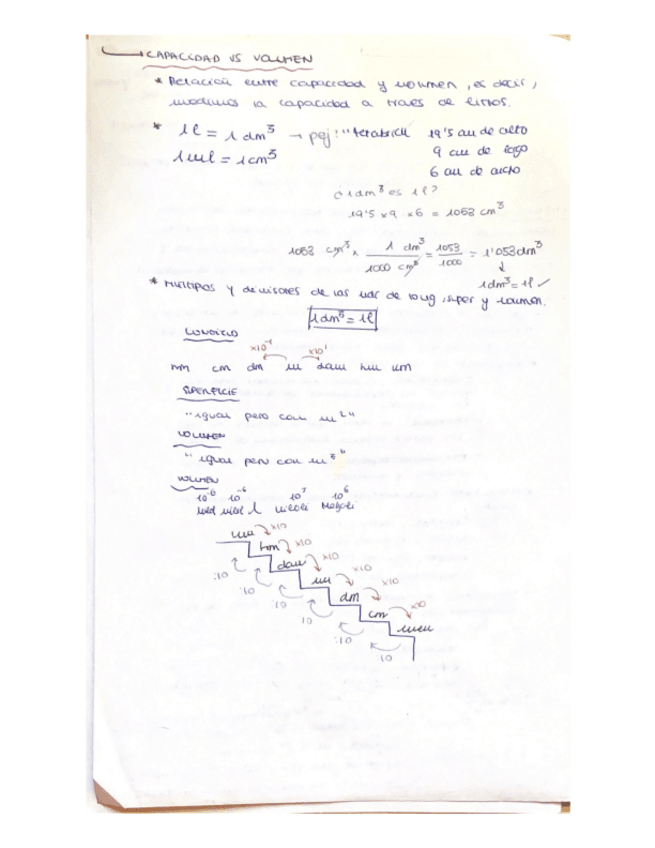 CAPACIDAD VS VOLUMEN
* Relación entre capacidad y volumen, es decir,
medimos la capacidad a traves de litros.
* 1l = 1 dm³ → pej: "tetabrick 19'5 cm de alto
1ml = 1cm³ 9 cm de largo
6 cm de ancho
¿1dm³ es 1l?
19'5 x 9 x 6 = 1053 cm³
1053 cm³ x 1 dm³ / 1000 cm³ = 1053 / 1000 = 1'053dm³
↓
1dm³ = 1l ✓
* Multiplos y divisores de las uds de long, super y volumen.
1dm³ = 1l
LONGITUD
x10⁻¹ x10¹
mm cm dm m dam hm km
SUPERFICIE
"igual pero con m²"
VOLUMEN
"igual pero con m³"
VOLUMEN
10⁻⁶ 10⁶
l Megali
km x10
hm x10
dam x10
:10 m x10
:10 dm x10
:10 cm x10
10 mm
:10
10